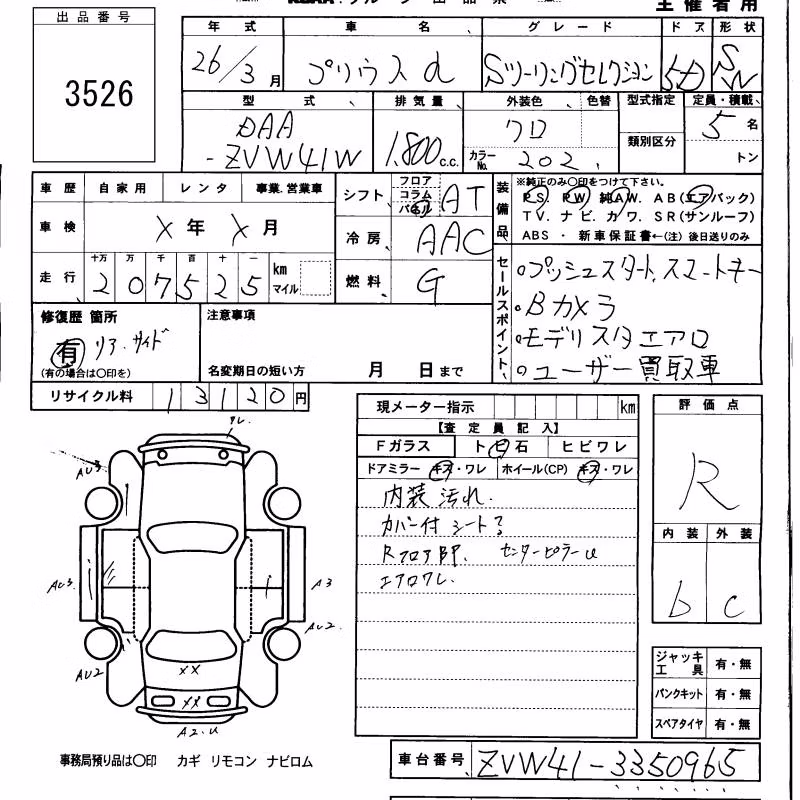 主催者用
出品番号
3526
年式 車名 グレード ドア 形状
26/3月 プリウスα Sツーリングセレクション 5D SW
型式 排気量 外装色 色替 型式指定 定員・積載
DAA 1,800c.c. クロ 類別区分 5名
-ZVW41W カラーNo. 202 トン
車歴 自家用 レンタ 事業.営業車
車検 X年X月
走行 十万 万 千 百 十 一 km マイル
207525
シフト フロア コラム パネル AT
冷房 AAC
燃料 G
装備品 ※純正のみ〇印をつけて下さい。
PS. PW. 純AW. AB(エアバック)
TV. ナビ. カワ. SR(サンルーフ)
ABS ・ 新車保証書←(注) 後日送りのみ
セールスポイント
・プッシュスタート,スマートキー
・Bカメラ
・モデリスタエアロ
・ユーザー買取車
修復歴 箇所
有 リア.サイド
(有の場合は〇印を)
注意事項
名変期日の短い方 月 日まで
リサイクル料 13120円
現メーター指示 km
【査定員記入】
Fガラス トビ石 ヒビワレ
ドアミラー キズ・ワレ ホイール(CP) キズ・ワレ
内装汚れ.
カバー付シート?
RフロアBP. センターピラーU
エアロワレ.
評価点
R
内装 外装
b c
ジャッキ工具 有・無
パンクキット 有・無
スペアタイヤ 有・無
ワレ.
AU3
AU3
A3
AU2.
AU2
XX
XX
A2.U
事務局預り品は〇印 カギ リモコン ナビロム
車台番号 ZVW41-3350965